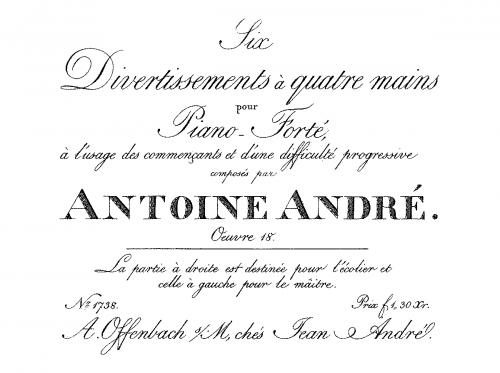 Six
Divertissements à quatre mains
pour
Piano-Forté,
à l'usage des commençants et d'une difficulté progressive
composés par
ANTOINE ANDRÉ.
Oeuvre 18.
La partie à droite est destinée pour l'écolier et
celle à gauche pour le maitre.
No. 1738. Prix f 1, 30 Xr.
A. Offenbach s/M, chés Jean André.